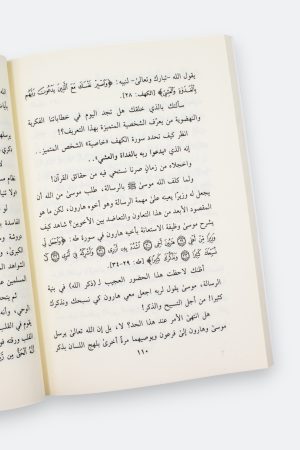 يقول الله -تبارك وتعالى- لنبيه: ﴿وَاصْبِرْ نَفْسَكَ مَعَ الَّذِينَ يَدْعُونَ رَبَّهُم
بِالْغَدَاةِ وَالْعَشِيِّ﴾ [الكهف: ٢٨].
سألتك بالذي خلقك هل تجد اليوم في خطاباتنا الفكرية
والنهضوية من يعرّف الشخصية المتميزة بهذا التعريف؟!
انظر كيف تحدد سورة الكهف «خاصية» الشخص المتميز..
إنه الذي «يدعوا ربه بالغداة والعشي»..
واخجلاه من زمان صرنا نستحي فيه من حقائق القرآن!
ولما كلف الله موسى ﷺ بالرسالة، طلب موسى من الله أن
يجعل له وزيرًا يعينه على مهمة الرسالة وهو أخوه هارون، لكن ما هو
المقصود الأبعد من هذا التعاون والتعاضد بين الأخوين؟ شاهد كيف
يشرح موسى وظيفة الاستعانة بأخيه هارون في سورة طه: ﴿وَاجْعَل لِّي
وَزِيرًا مِّنْ أَهْلِي ۝ هَارُونَ أَخِي ۝ اشْدُدْ بِهِ أَزْرِي ۝ وَأَشْرِكْهُ فِي أَمْرِي ۝ كَيْ
نُسَبِّحَكَ كَثِيرًا ۝ وَنَذْكُرَكَ كَثِيرًا﴾ [طه: ٢٩-٣٤].
أظنك لاحظت هذا الحضور العجيب لـ(ذكر الله) في بنية
الرسالة، موسى يقول لربه اجعل معي هارون كي نسبحك ونذكرك
كثيرًا! من أجل التسبيح والذكر؟
هل انتهى الأمر عند هذا الحد؟ لا، بل إن الله تعالى يرسل
موسى وهارون إلى فرعون ويوصيهما مرة أخرى بلهج اللسان بذكر
١١٠